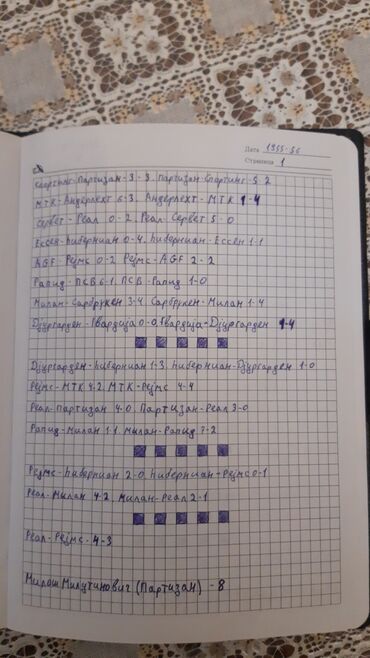 Дата 1955-56
Страница 1
Спортинг-Партизан-3-3, Партизан-Спартинг-5-2
МТК-Андерлехт 6-3, Андерлехт-МТК 1-4
Сервет-Реал 0-2, Реал-Сервет 5-0
Ессен-Хиберниан 0-4, Хиберниан-Ессен 1-1
AGF-Рејмс 0-2, Рејмс-AGF 2-2
Рапид-ПСВ 6-1, ПСВ-Рапид 1-0
Милан-Сарбрукен 3-4, Сарбрукен-Милан 1-4
Djургарден-Гвардија 0-0, Гвардија-Djургарден 1-4
Djургарден-Хиберниан 1-3, Хиберниан-Djургарден 1-0
Рејмс-МТК 4-2, МТК-Рејмс 4-4
Реал-Партизан 4-0, Партизан-Реал 3-0
Рапид-Милан 1-1, Милан-Рапид 7-2
Рејмс-Хиберниан 2-0, Хиберниан-Рејмс 0-1
Реал-Милан 4-2, Милан-Реал 2-1
Реал-Рејмс-4-3
Милош Милутиновиг (Партизан) -8